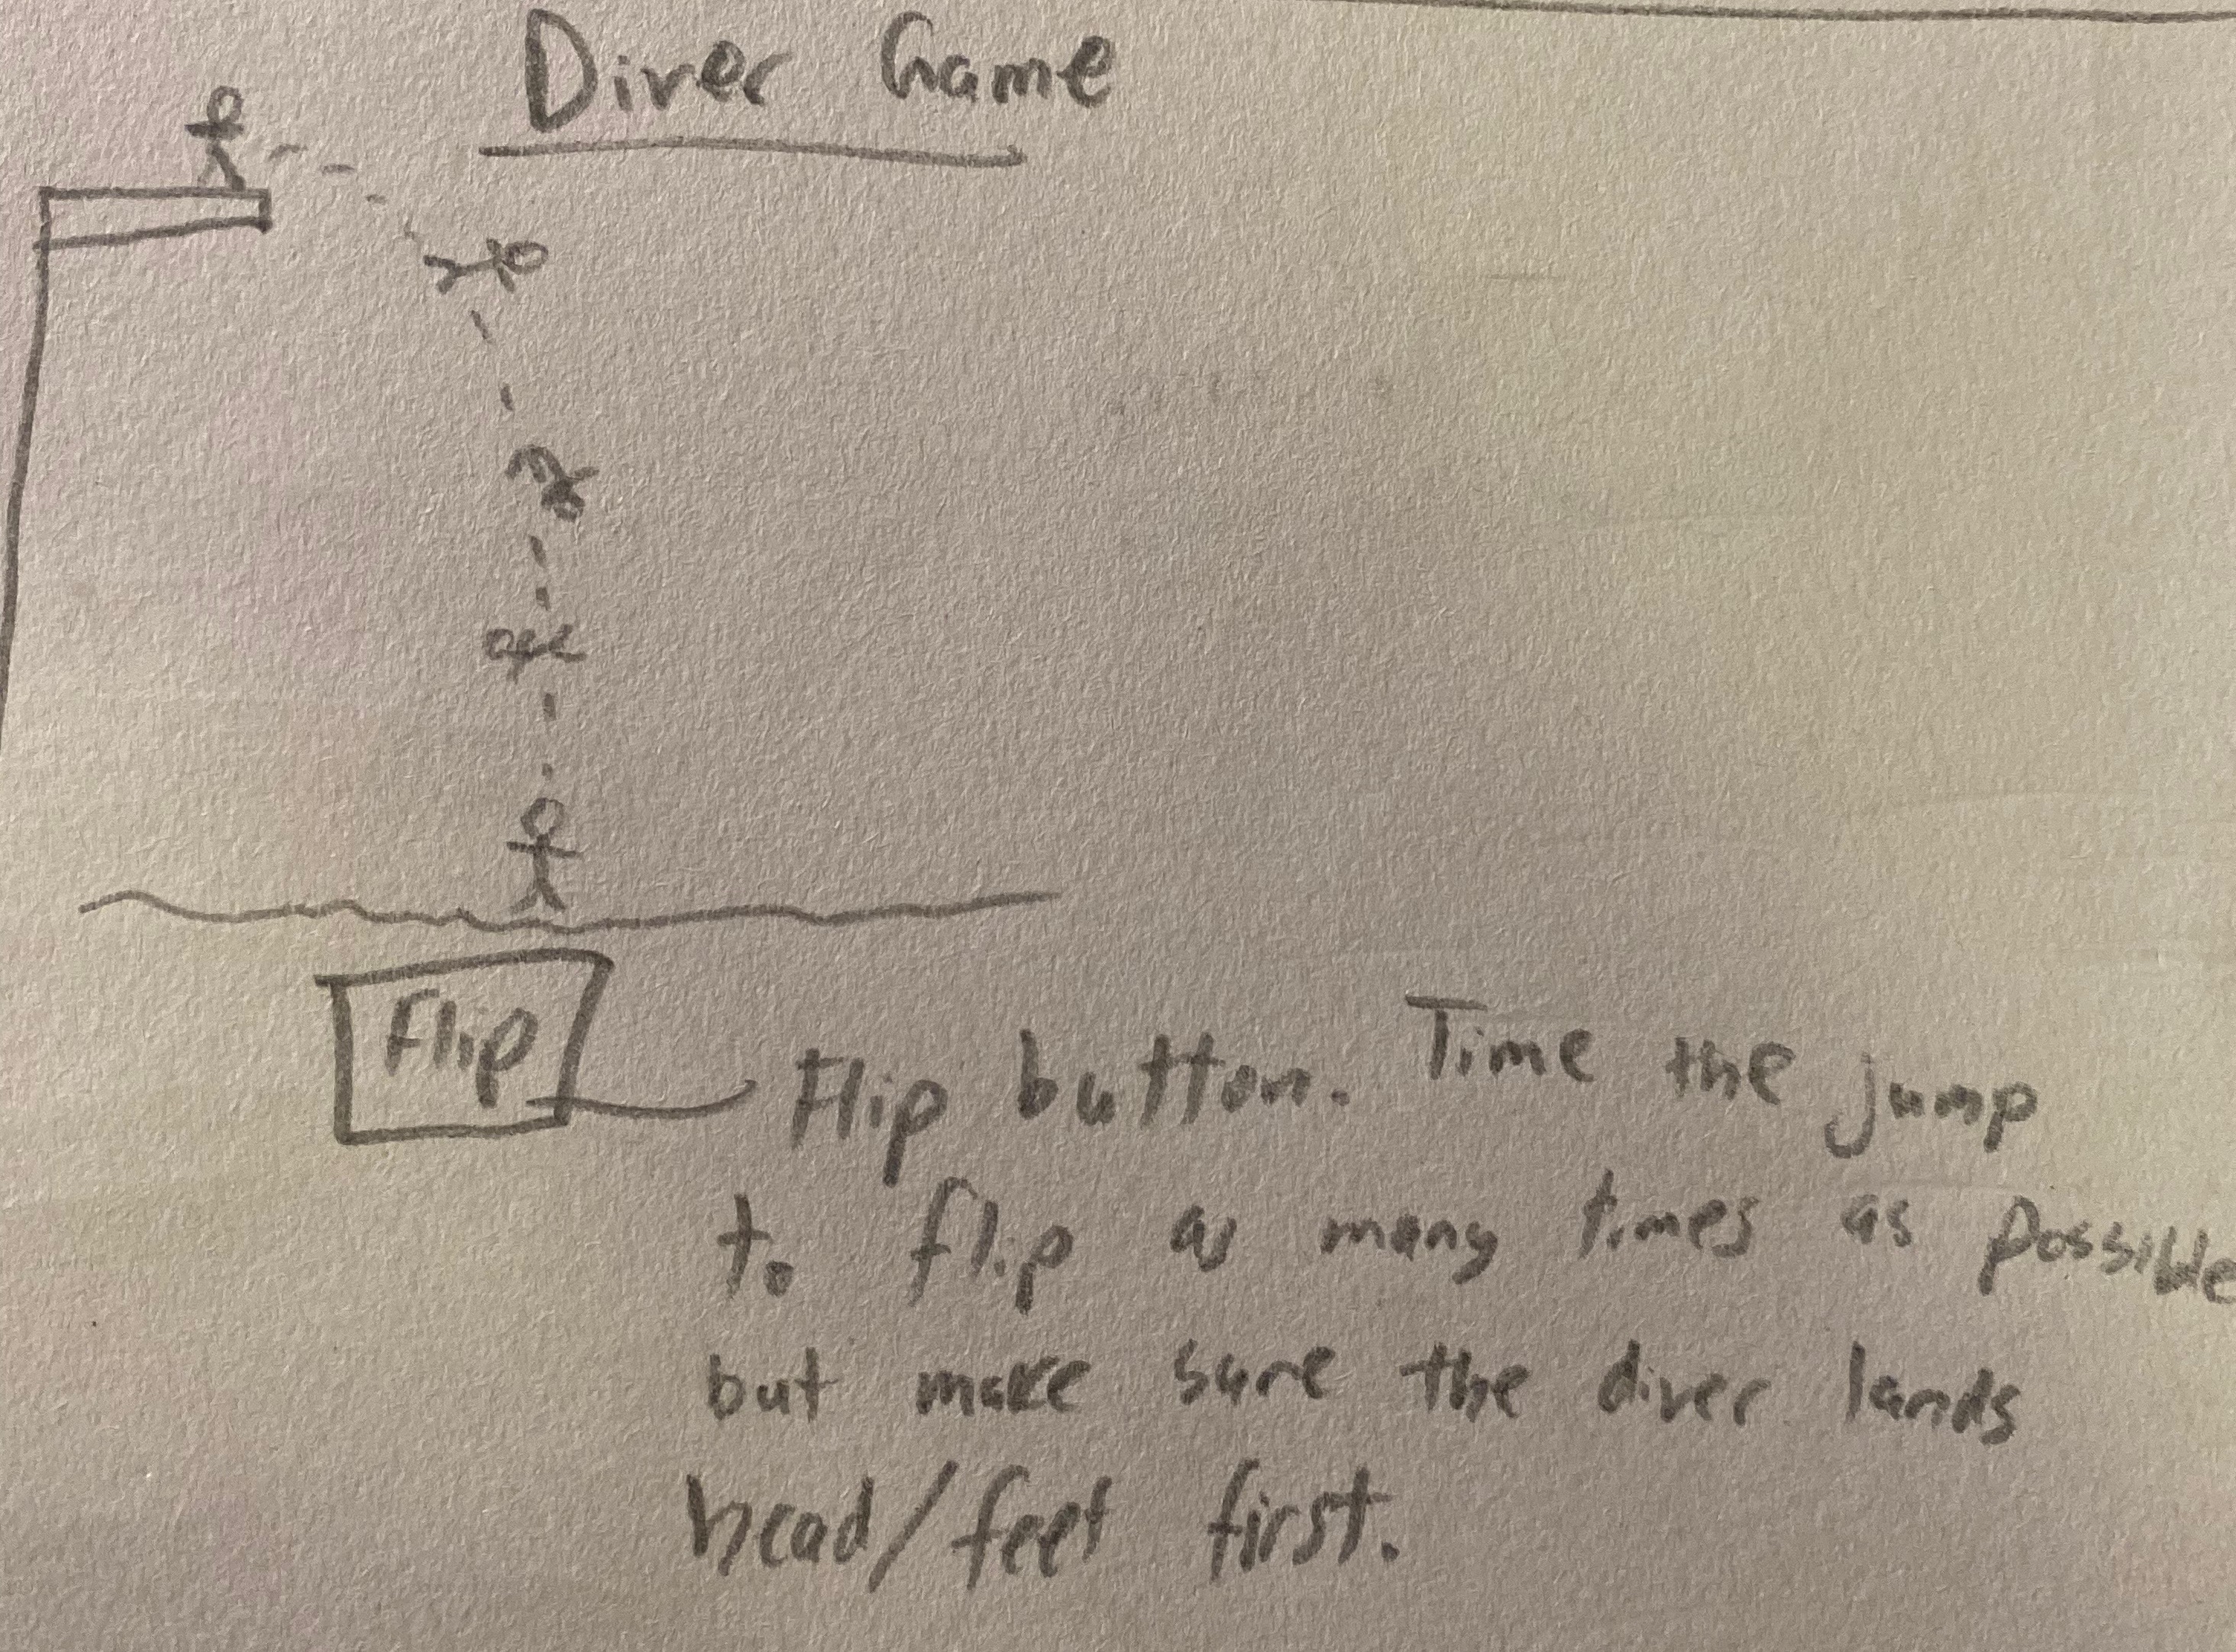 Diver Game
Flip
Flip button. Time the jump
to flip as many times as possible
but make sure the diver lands
head/feet first.